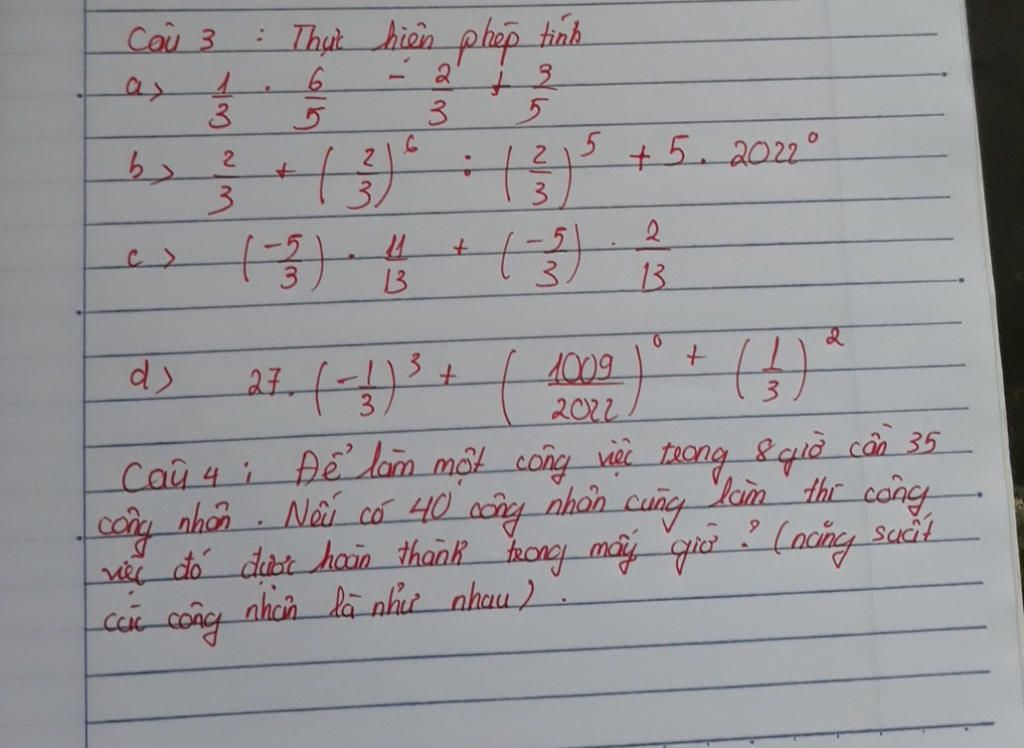 Câu 3 : Thực hiện phép tính
a> 1/3 . 6/5 - 2/3 + 3/5
b> 2/3 + (2/3)^6 : (2/3)^5 + 5 . 2022^0
c> (-5/3) . 11/13 + (-5/3) . 2/13
d> 27. (-1/3)^3 + (1009/2022)^0 + (1/3)^2
Câu 4 : Để làm một công việc trong 8 giờ cần 35
công nhân . Nếu có 40 công nhân cùng làm thì công
việc đó được hoàn thành trong mấy giờ ? (năng suất
các công nhân là như nhau) .